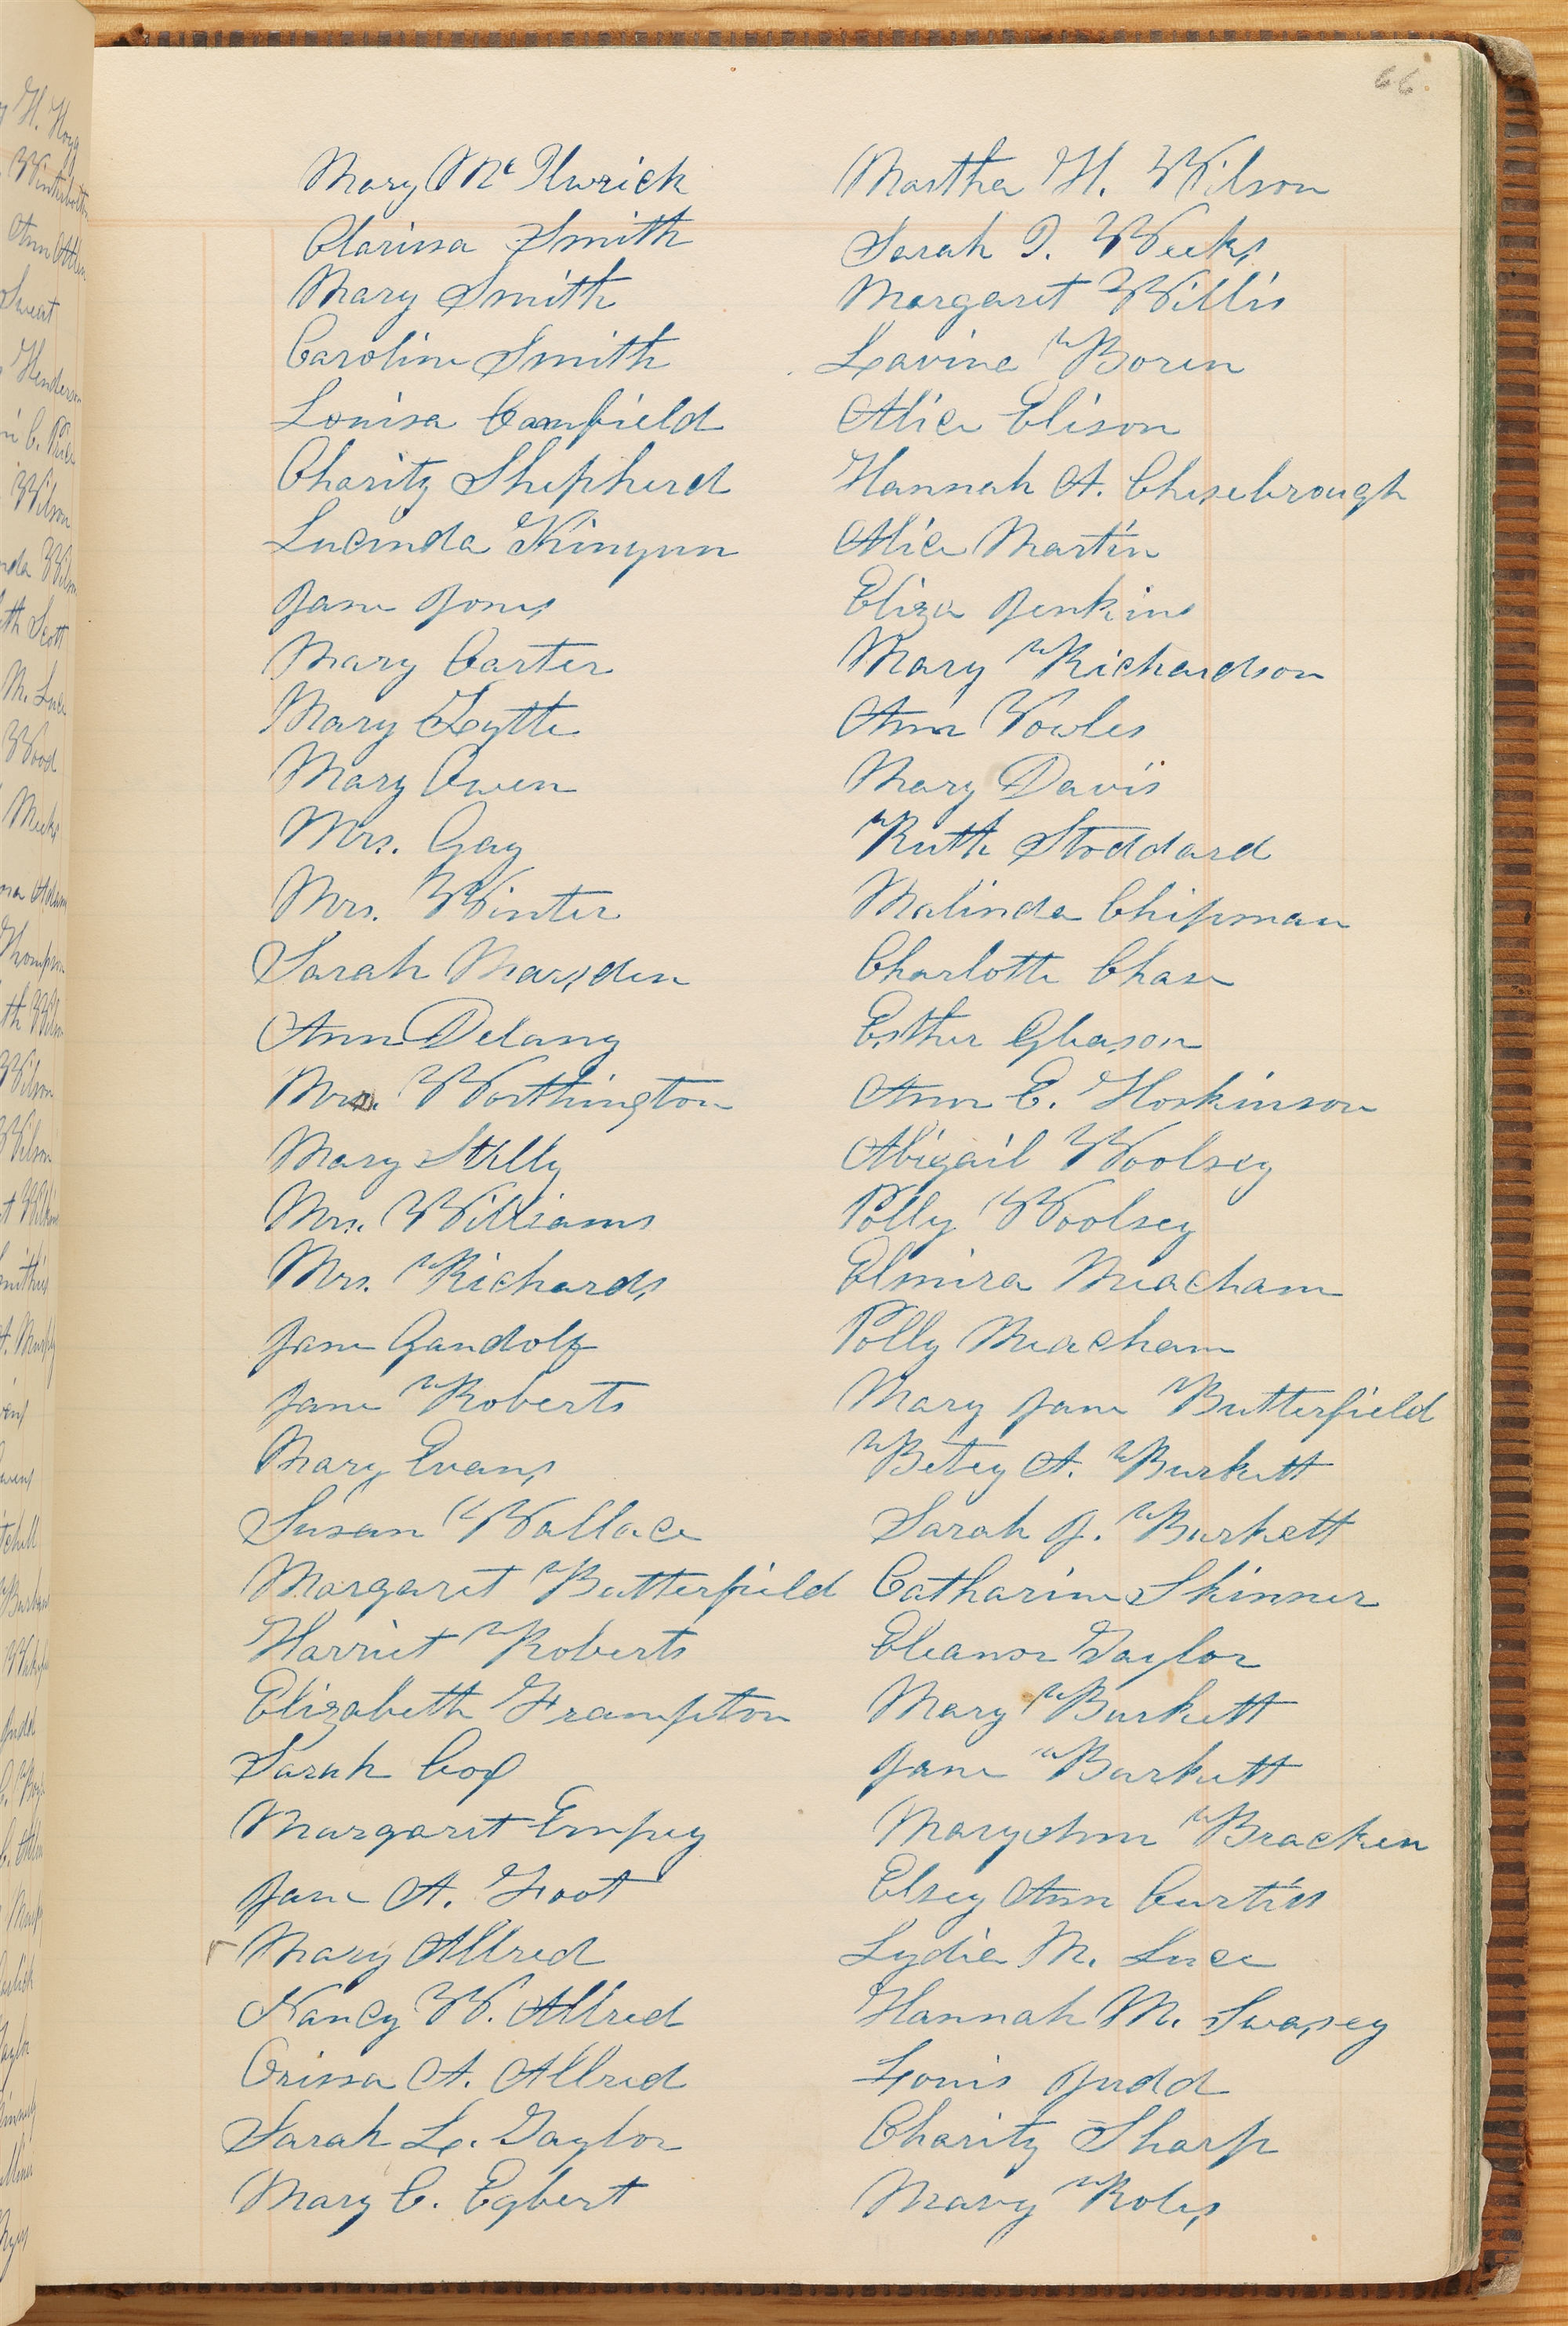 66
Mary McIlwrick
Clarissa Smith
Mary Smith
Caroline Smith
Louisa Camfield
Charity Shepherd
Lucinda Kinyun
Jane Jones
Mary Carter
Mary Lytte
Mary Owen
Mrs. Gay
Mrs. Winter
Sarah Marsden
Ann Delany
Mrs. Worthington
Mary Stilly
Mrs. Williams
Mrs. Richards
Jane Gandolf
Jane Roberts
Mary Evans
Susan Wallace
Margaret Butterfield
Harriet Roberts
Elizabeth Frampton
Sarah Cox
Margaret Empey
Jane A. Foot
Mary Allred
Nancy W. Allred
Orissa A. Allred
Sarah L. Taylor
Mary C. Egbert
Martha H. Wilson
Sarah I. Weeks
Margaret Willis
Lavine Boren
Alice Elison
Hannah A. Chesebrough
Alice Martin
Eliza Jenkins
Mary Richardson
Ann Vowles
Mary Davis
Ruth Stoddard
Malinda Chipman
Charlotte Chase
Esther Gleason
Ann E. Hoskinson
Abigail Woolsey
Polly Woolsey
Elmira Meacham
Polly Meacham
Mary Jane Butterfield
Betsy A. Burkett
Sarah J. Burkett
Catharine Skinner
Eleanor Taylor
Mary Burkett
Jane Burkett
Mary Ann Bracken
Elsey Ann Curtiss
Lydia M. Luce
Hannah M. Swasey
Lois Judd
Charity Sharp
Mary Roles